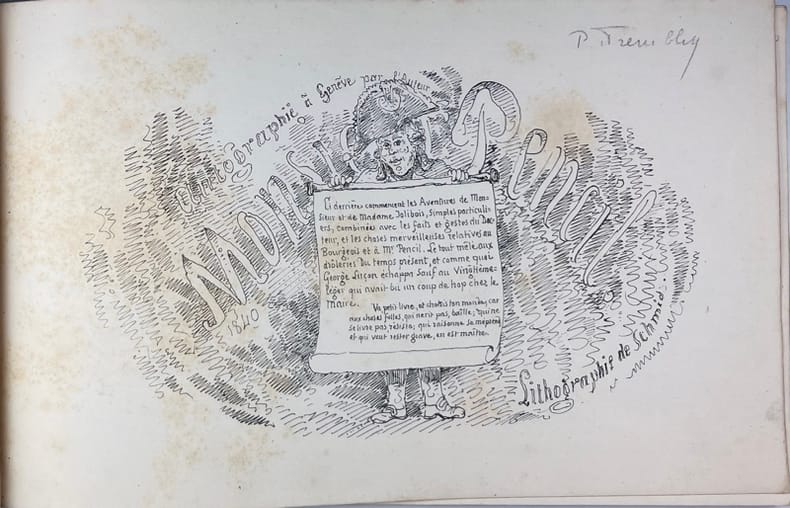 P. Trembley
Autographié à Genève par l'Auteur
Monsi Pencil
1840
Ci derrière commencent les Aventures de Mon-
sieur et de Madame Jolibois, simples particuli-
ers, combinées avec les faits et gestes du Doc-
teur, et les choses merveilleuses relatives au
Bourgeois et à Mr Pencil. Le tout mêlé aux
drôleries du temps présent, et comme quoi
George Luçon échappa sauf au Vingtième-
léger qui avait bu un coup de trop chez le
Maire.
Va petit livre, et choisis ton monde, car
aux choses folles, qui ne rit pas, bâille; qui ne
se livre pas résiste; qui raisonne se méprend
et qui veut rester grave, en est maître.
Lithographie de Schmid